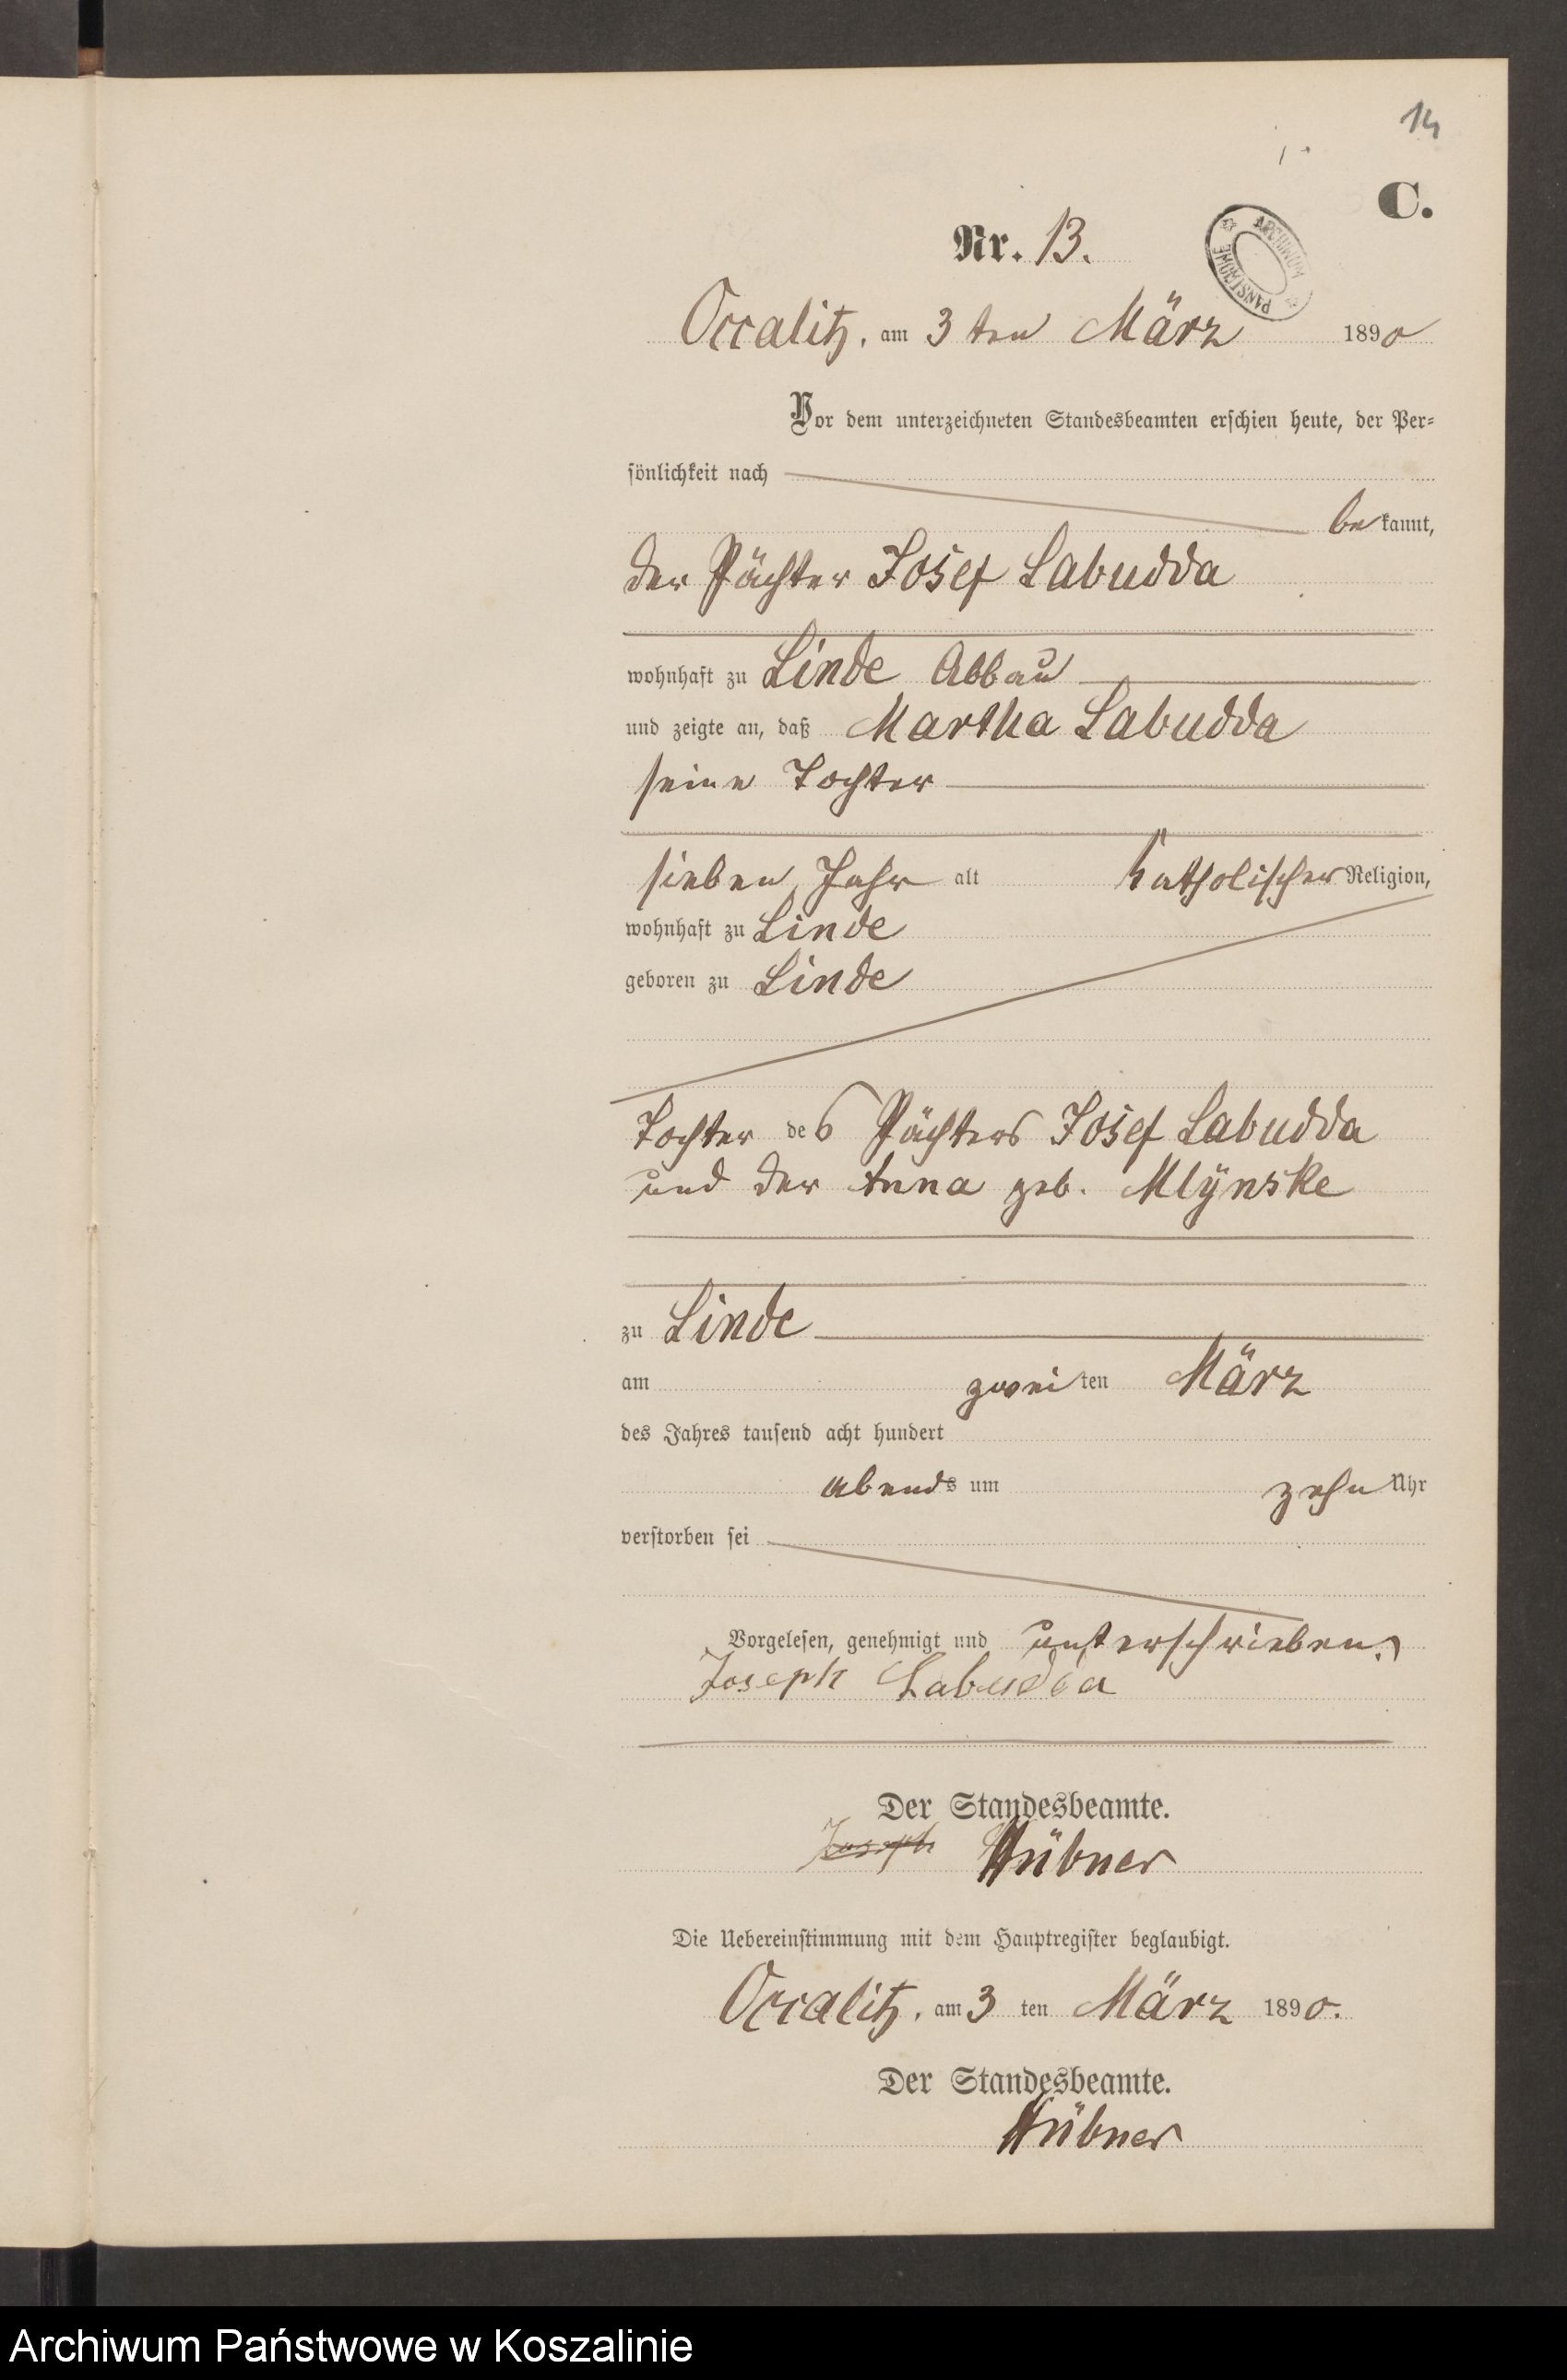 14
C.
Nr. 13.
ARCHIWUM PAŃSTWOWE
Occalitz, am 3 ten März 1890
Vor dem unterzeichneten Standesbeamten erschien heute, der Per-
sönlichkeit nach
be kannt,
der Pächter Josef Labudda
wohnhaft zu Linde Abbau
und zeigte an, daß Martha Labudda
seine Tochter
sieben Jahr alt katholischer Religion,
wohnhaft zu Linde
geboren zu Linde
Tochter des Pächters Josef Labudda
und der Anna geb. Mlÿnske
zu Linde
am zweiten März
des Jahres tausend acht hundert
abends um zehn Uhr
verstorben sei
Vorgelesen, genehmigt und unterschrieben.
Joseph Labudda
Der Standesbeamte.
Joseph Hübner
Die Uebereinstimmung mit dem Hauptregister beglaubigt.
Occalitz, am 3 ten März 1890.
Der Standesbeamte.
Hübner
Archiwum Państwowe w Koszalinie